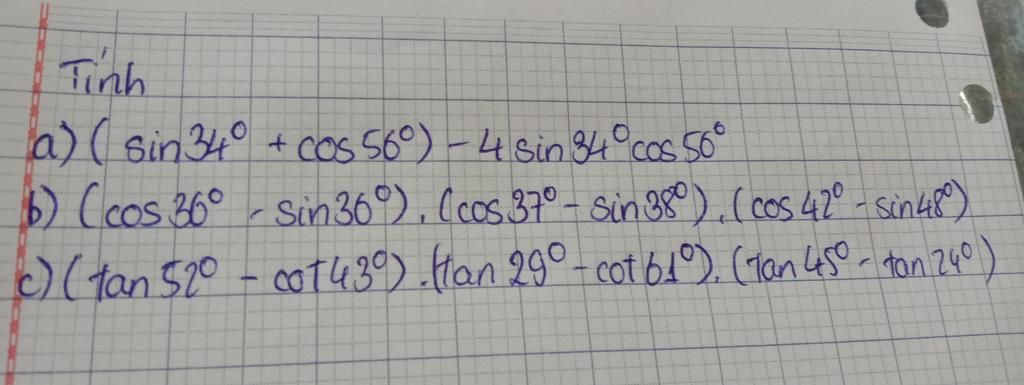 Tính
a) ( sin 34° + cos 56°) - 4 sin 34° cos 56°
b) (cos 36° - sin 36°) . (cos 37° - sin 38°) . (cos 42° - sin 48°)
c) (tan 52° - cot 43°) . (tan 29° - cot 61°) . (tan 45° - tan 24°)